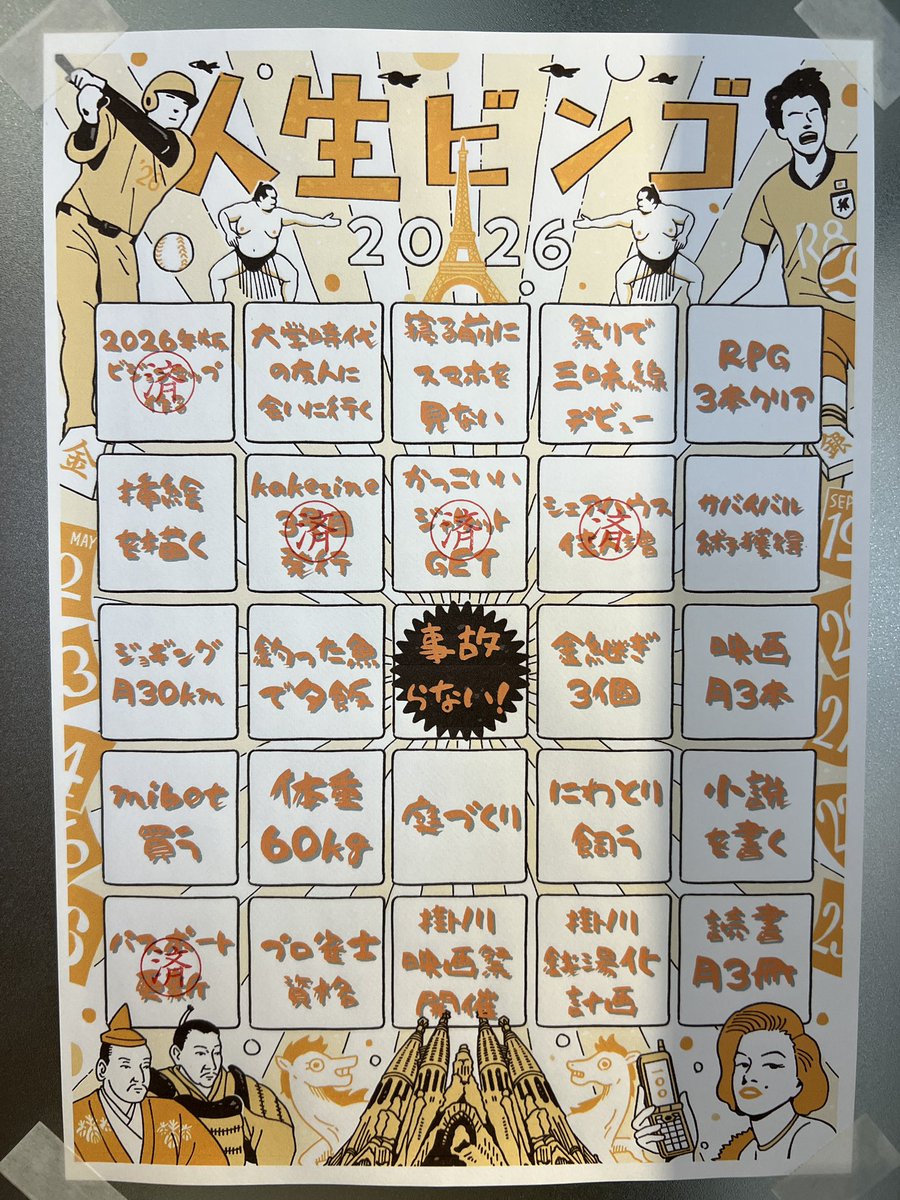 人生ビンゴ
2026
'26
R8
2026年版
ビジョンマップ
作る
済
大学時代
の友人に
会いに行く
寝る前に
スマホを
見ない
祭りで
三味線
デビュー
RPG
3本クリア
金
挿絵
を描く
kakezine
発行
済
かっこいい
ジャケット
GET
済
シェアハウス
済
サバイバル
術獲得
MAY
2
3
4
5
6
SEP
19
20
21
22
23
ジョギング
月30km
釣った魚
で夕飯
事故
らない!
金継ぎ
3個
映画
月3本
mibot
買う
体重
60kg
庭づくり
にわとり
飼う
小説
を書く
パスポート
発行
済
プロ雀士
資格
掛川
映画祭
開催
掛川
銭湯化
計画
読書
月3冊